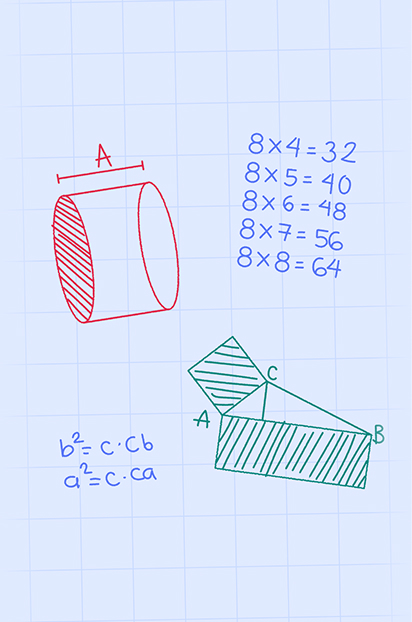 A
8×4=32
8×5=40
8×6=48
8×7=56
8×8=64
C
A
B
b²=c·cb
a²=c·ca